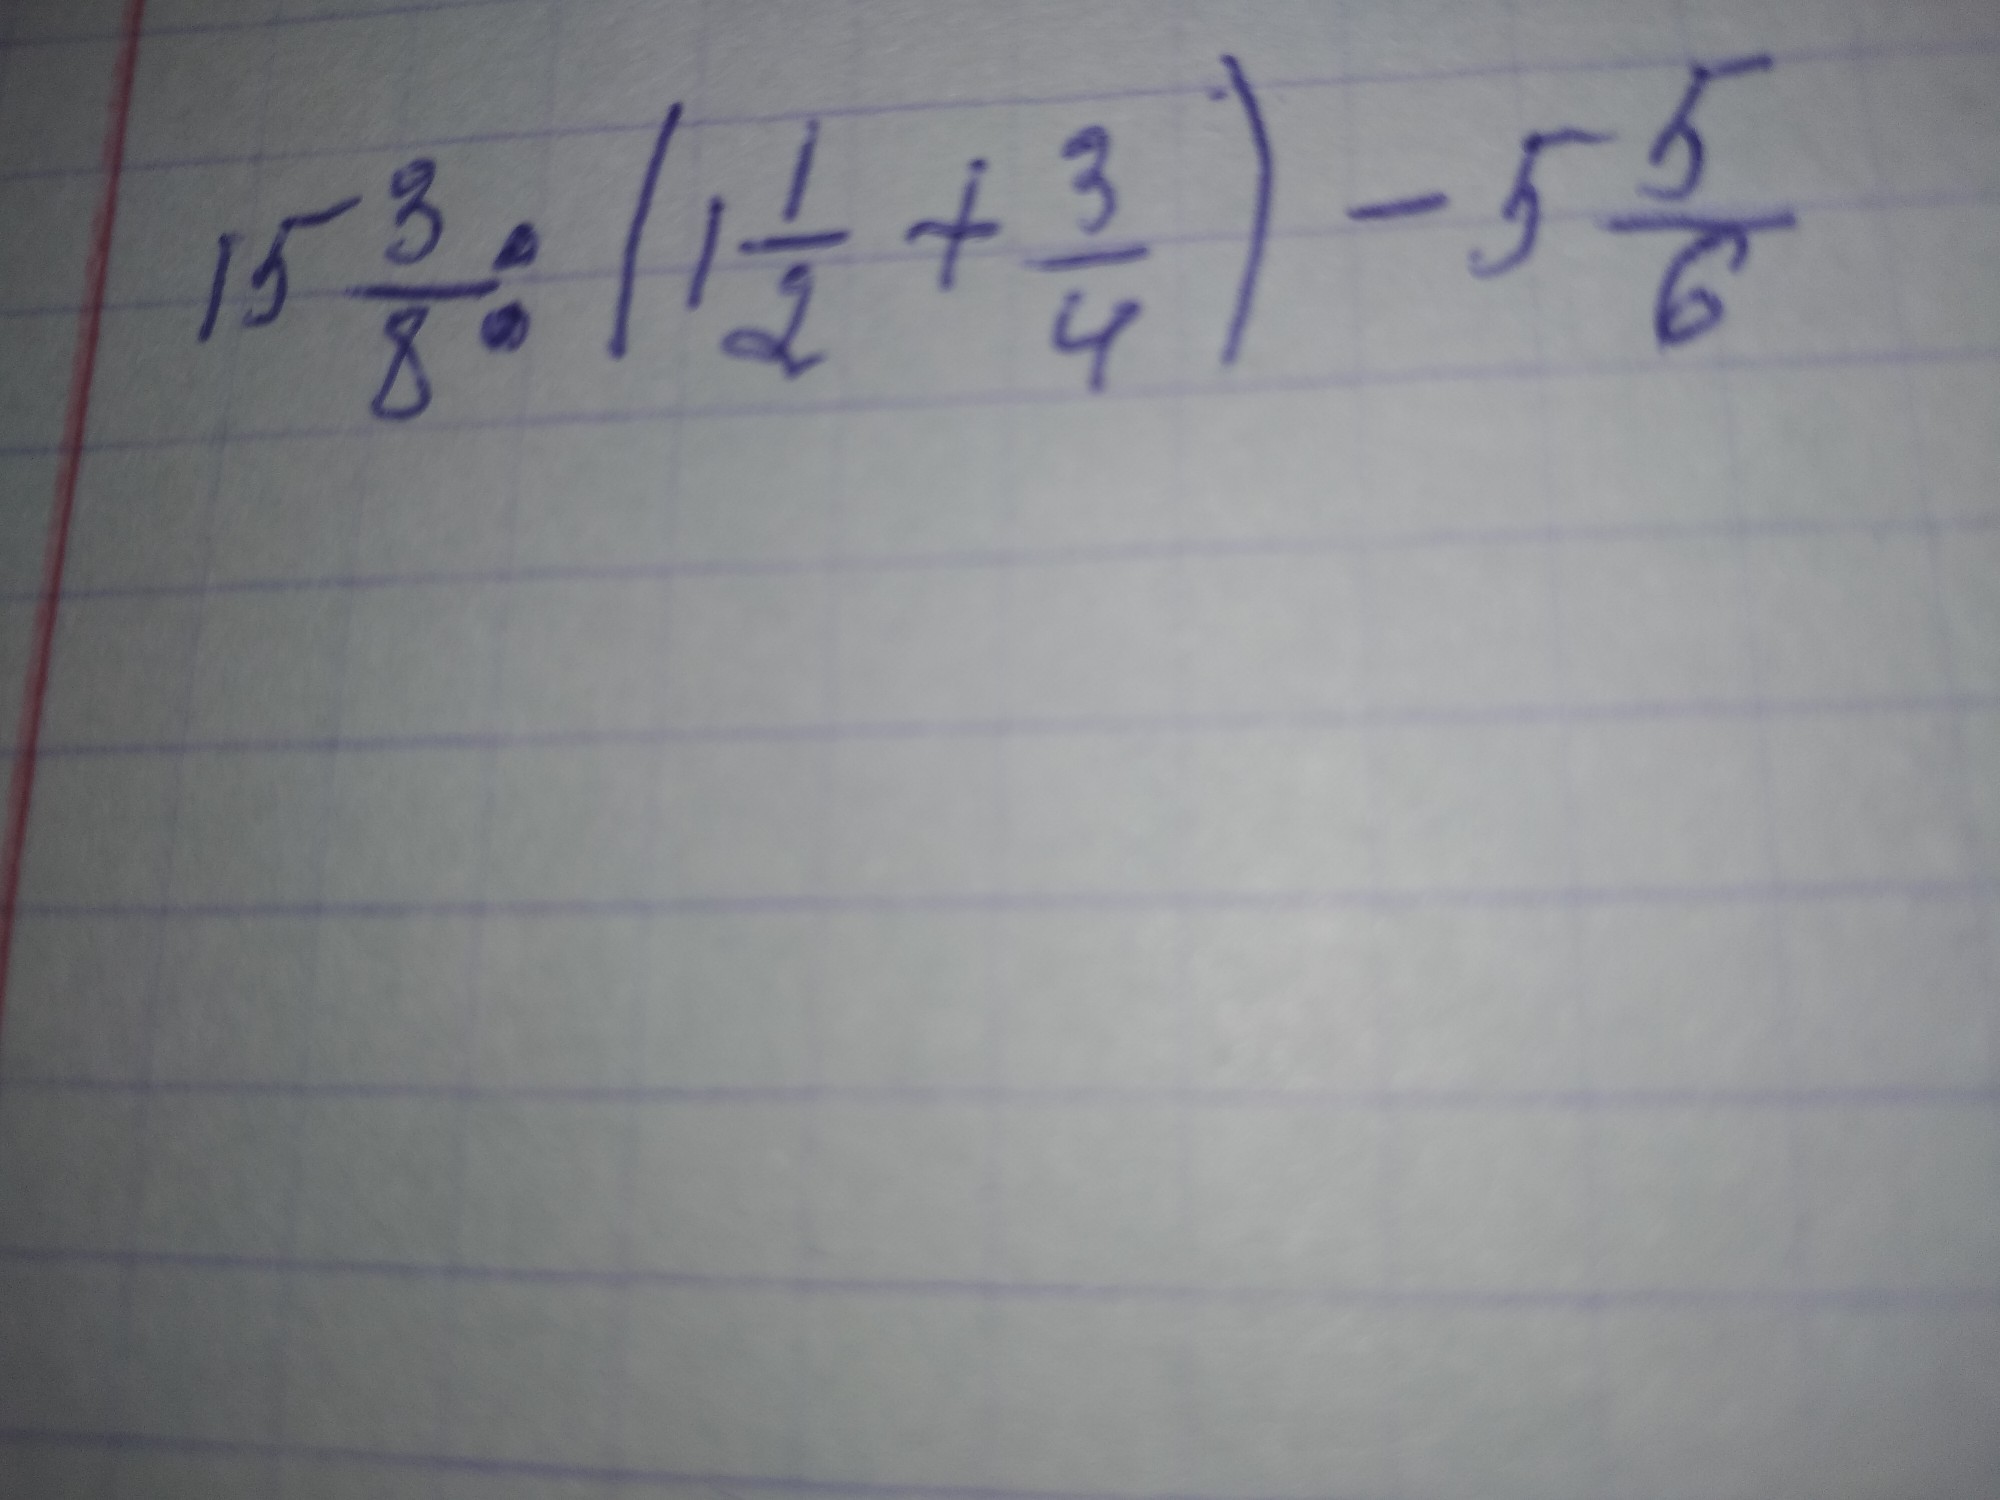 15 3/8 : (1 1/2 + 3/4) - 5 5/6